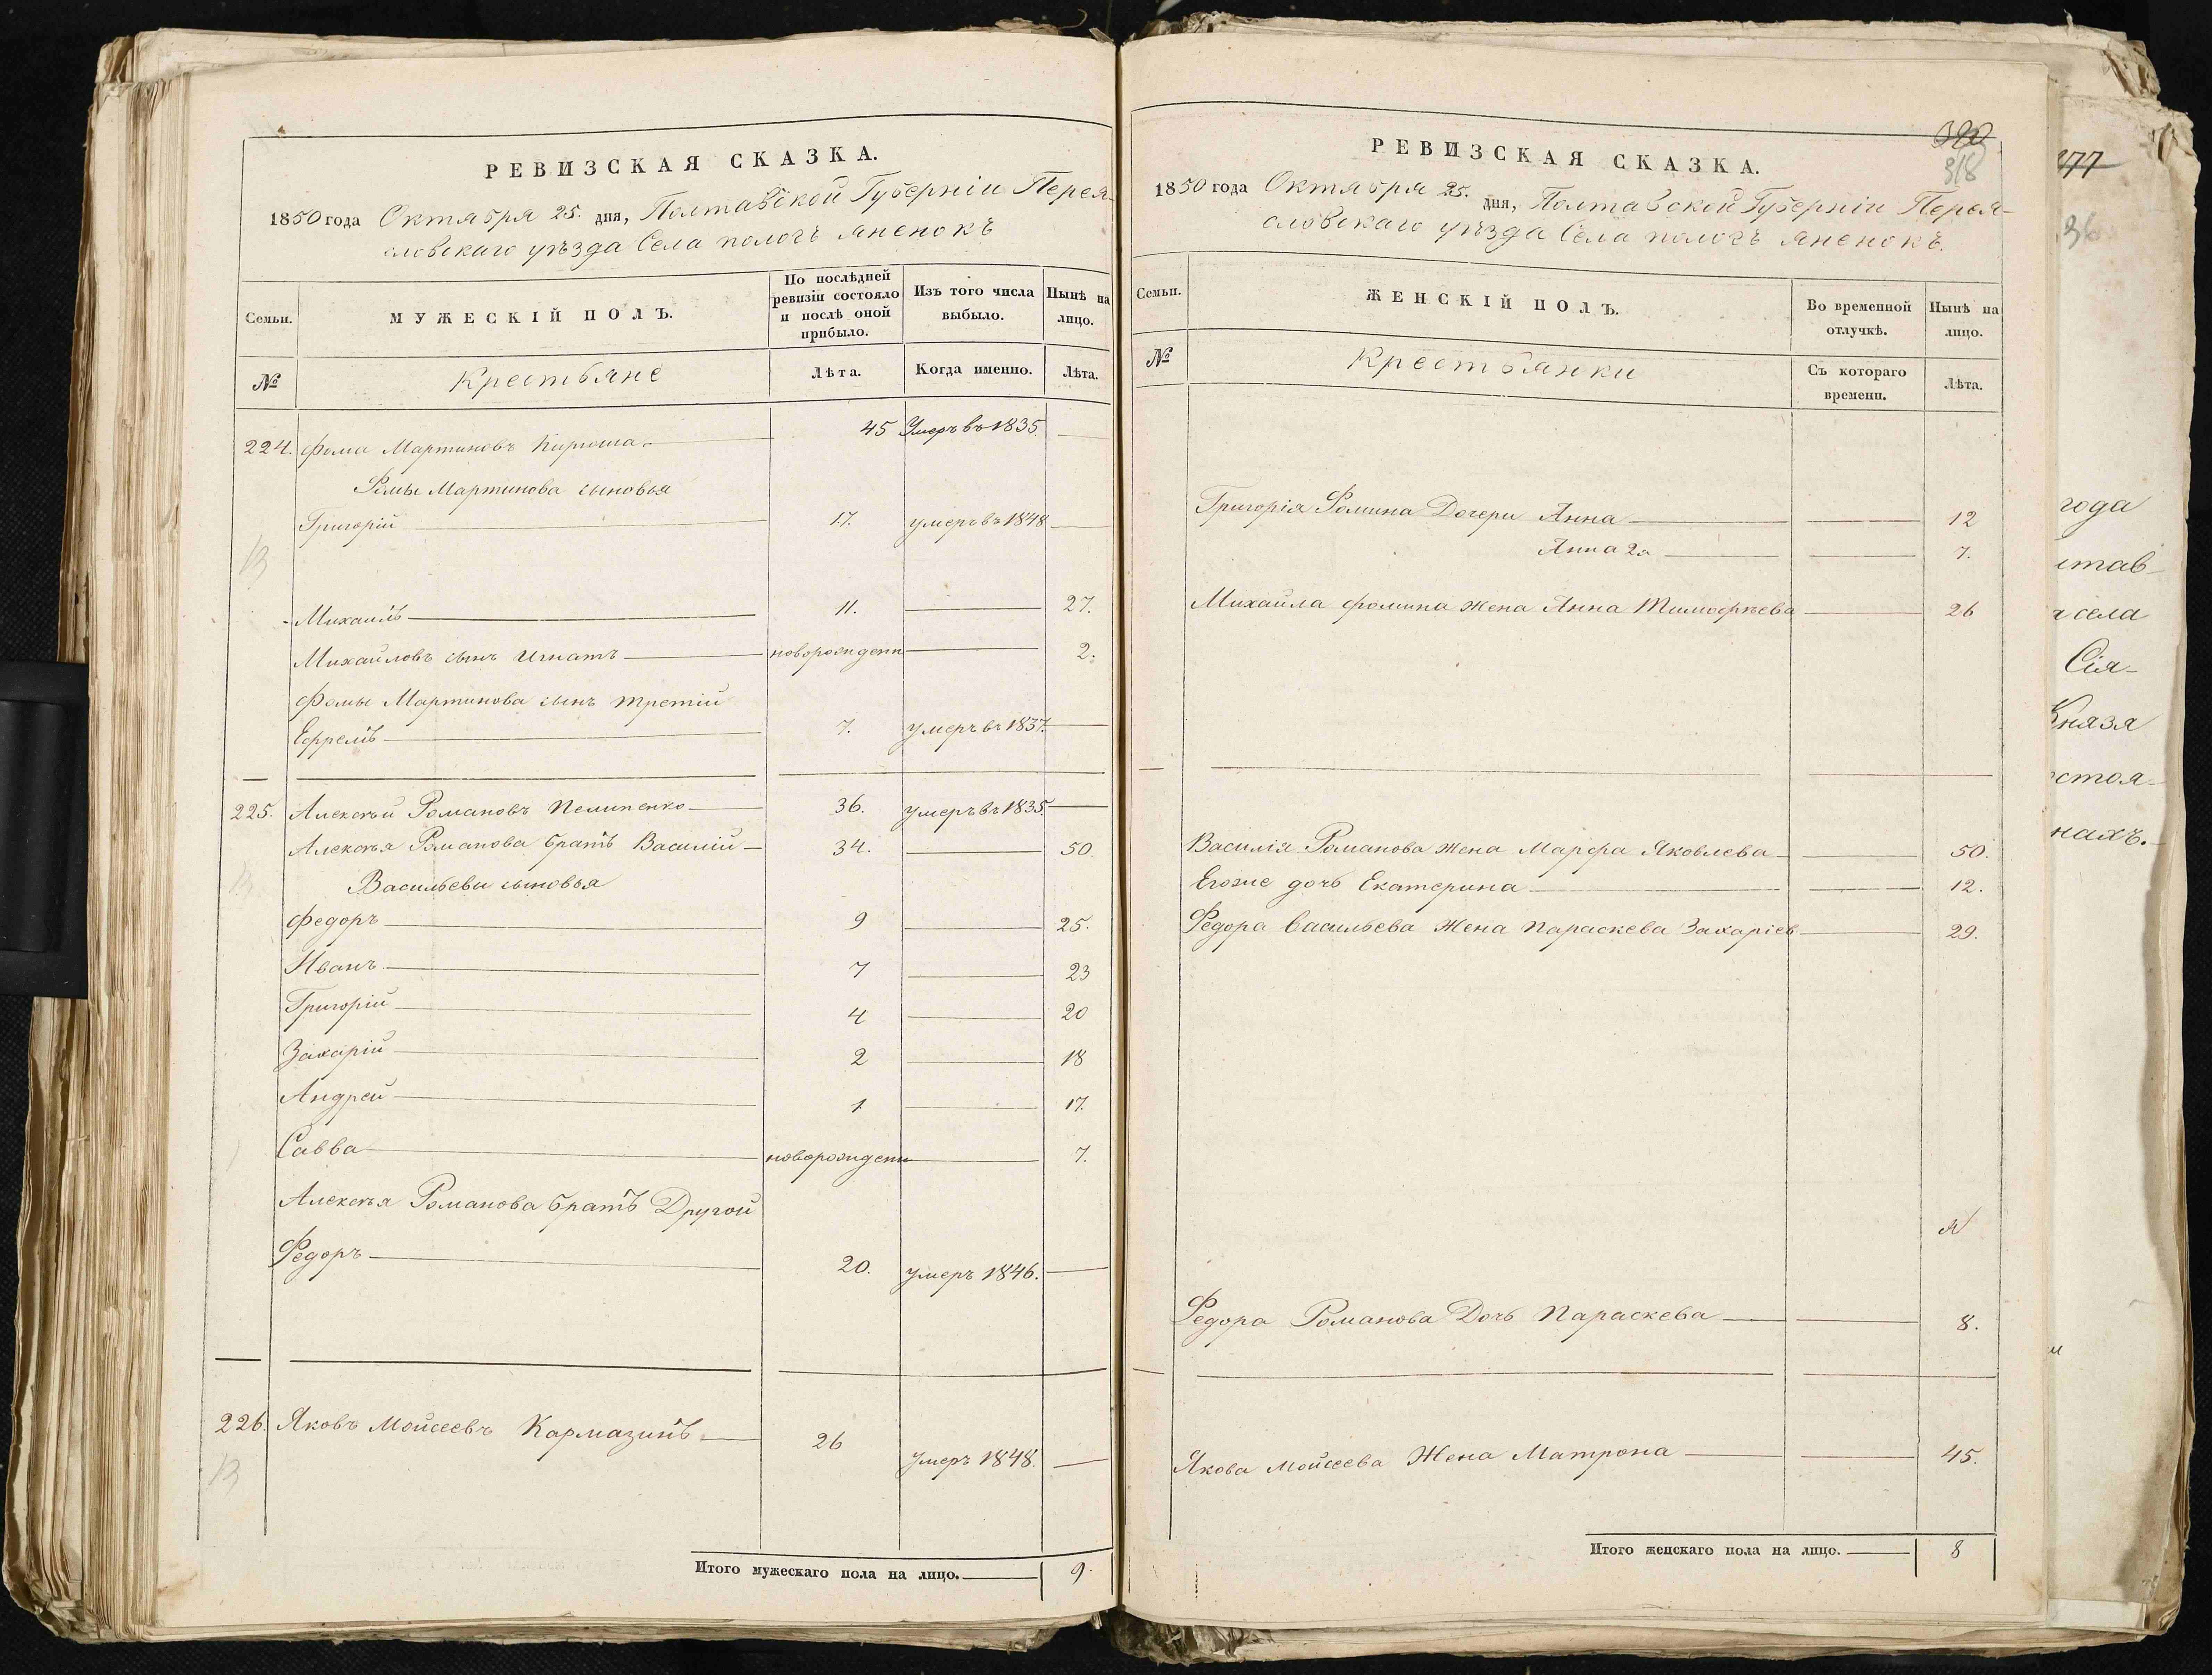 РЕВИЗСКАЯ СКАЗКА.
1850 года Октября 25. дня, Полтавской Губерніи Перея-
словскаго уѣзда Села пологъ яненокъ
Семьи.
МУЖЕСКІЙ ПОЛЪ.
По послѣдней ревизіи состояло и послѣ оной прибыло.
Изъ того числа выбыло.
Нынѣ на лицо.
№
Крестьяне
Лѣта.
Когда именно.
Лѣта.
224. Фома Мартиновъ 45 Умеръ въ 1835
Фомы Мартинова сыновья
Григорій 17. умеръ въ 1848
Михаилъ 11. 27.
Михайловъ сынъ Игнатъ новорожденн 2.
Фомы Мартинова сынъ третій
Ефремъ 7. умеръ въ 1837.
225. Алексѣй Романовъ Пелипенко 36. умеръ въ 1835.
Алексѣя Романова братъ Василій 34. 50.
Васильевы сыновья
Федоръ 9 25.
Иванъ 7 23
Григорій 4 20
Захарій 2 18
Андрей 1 17.
Савва новорожденн 7.
Алексѣя Романова братъ Другой
Федоръ 20. умеръ 1846.
226. Яковъ Мойсеевъ Кармазинъ 26 Умеръ 1848.
Итого мужескаго пола на лицо. 9.
320
318
РЕВИЗСКАЯ СКАЗКА.
1850 года Октября 25. дня, Полтавской Губерніи Перея-
словскаго уѣзда Села пологъ яненокъ.
Семьи.
ЖЕНСКІЙ ПОЛЪ.
Во временной отлучкѣ.
Нынѣ на лицо.
№
Крестьянки
Съ котораго времени.
Лѣта.
Григорія Фомина Дочери Анна 12
Анна 2я 7.
Михайла Фомина жена Анна Тимофѣева 26
Василія Романова жена Марфа Яковлева 50.
Егоже дочь Екатерина 12.
Федора Васильева Жена Параскева Захаріев 29.
Федора Романова Дочь Параскева 8.
Якова Мойсеева Жена Матрона 45.
Итого женскаго пола на лицо. 8
377
года
тав-
села
Сія-
Князя
стоя-
нахъ.